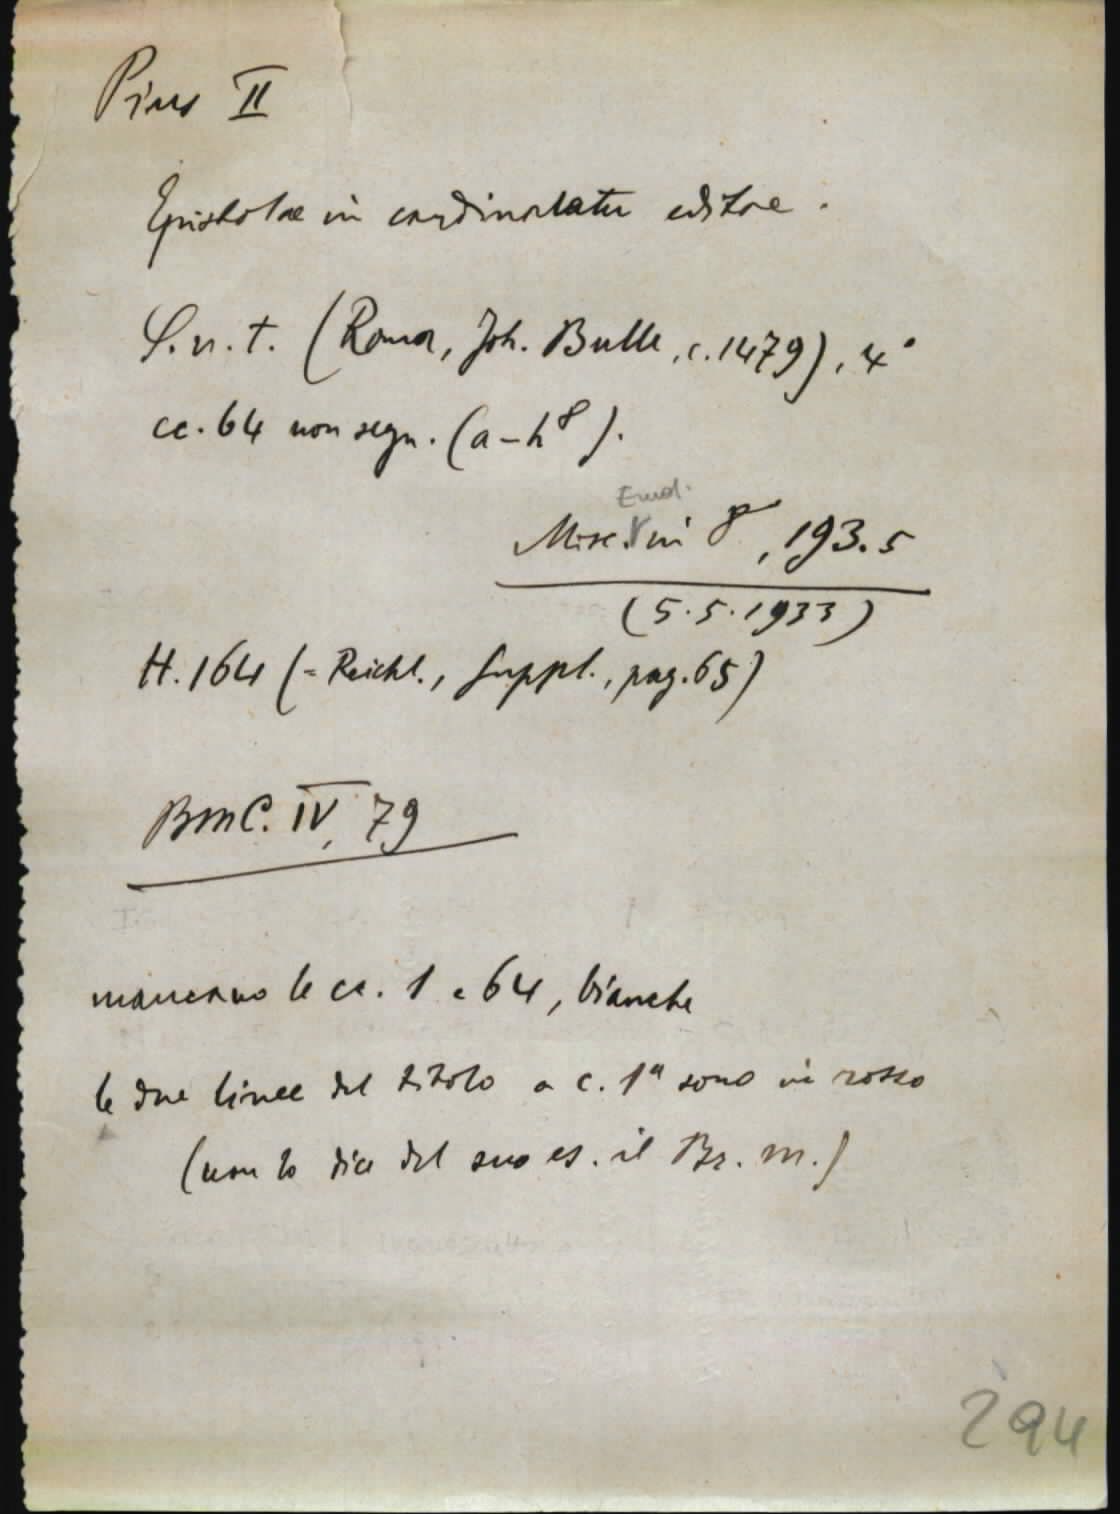 Pius II
Epistolae in cardinalatu editae.
S.n.t. (Roma, Joh. Bulle, c. 1479), 4°
cc. 64 non segn. (a-h⁸).
Emil.
Misc. in 8°, 193.5
(5.5.1933)
H. 164 (= Reichl., Suppl., pag. 65)
BMC. IV, 79
mancano le cc. 1 e 64, bianche
le due linee del titolo a c. 1ᵃ sono in rosso
(non lo dice del suo es. il Br. M.)
294